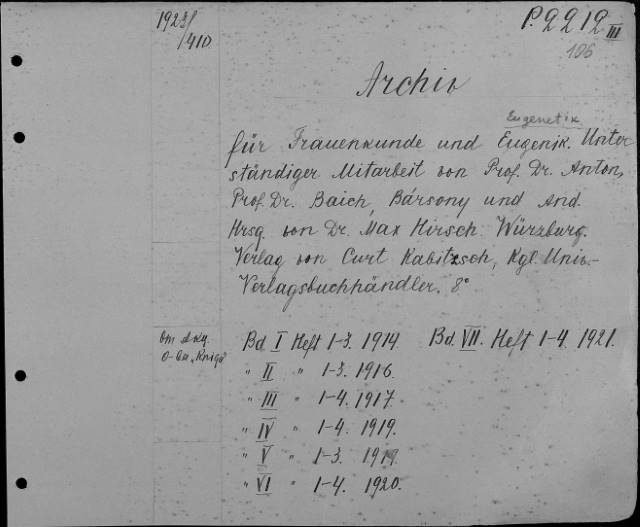 1923/410
P. 2212 III
106
Archiv
Eugenetik
für Frauenkunde und Eugenik. Unter
ständiger Mitarbeit von Prof. Dr. Anton,
Prof. Dr. Baich, Bársony und And.
Hrsg. von Dr. Max Hirsch. Würzburg.
Verlag von Curt Kabitzsch, Kgl. Univ.-
Verlagsbuchhändler. 8°
Bd I Heft 1-3. 1914 Bd. VII. Heft 1-4. 1921.
" II " 1-3. 1916.
" III " 1-4. 1917.
" IV " 1-4. 1919.
" V " 1-3. 1919.
" VI " 1-4. 1920.